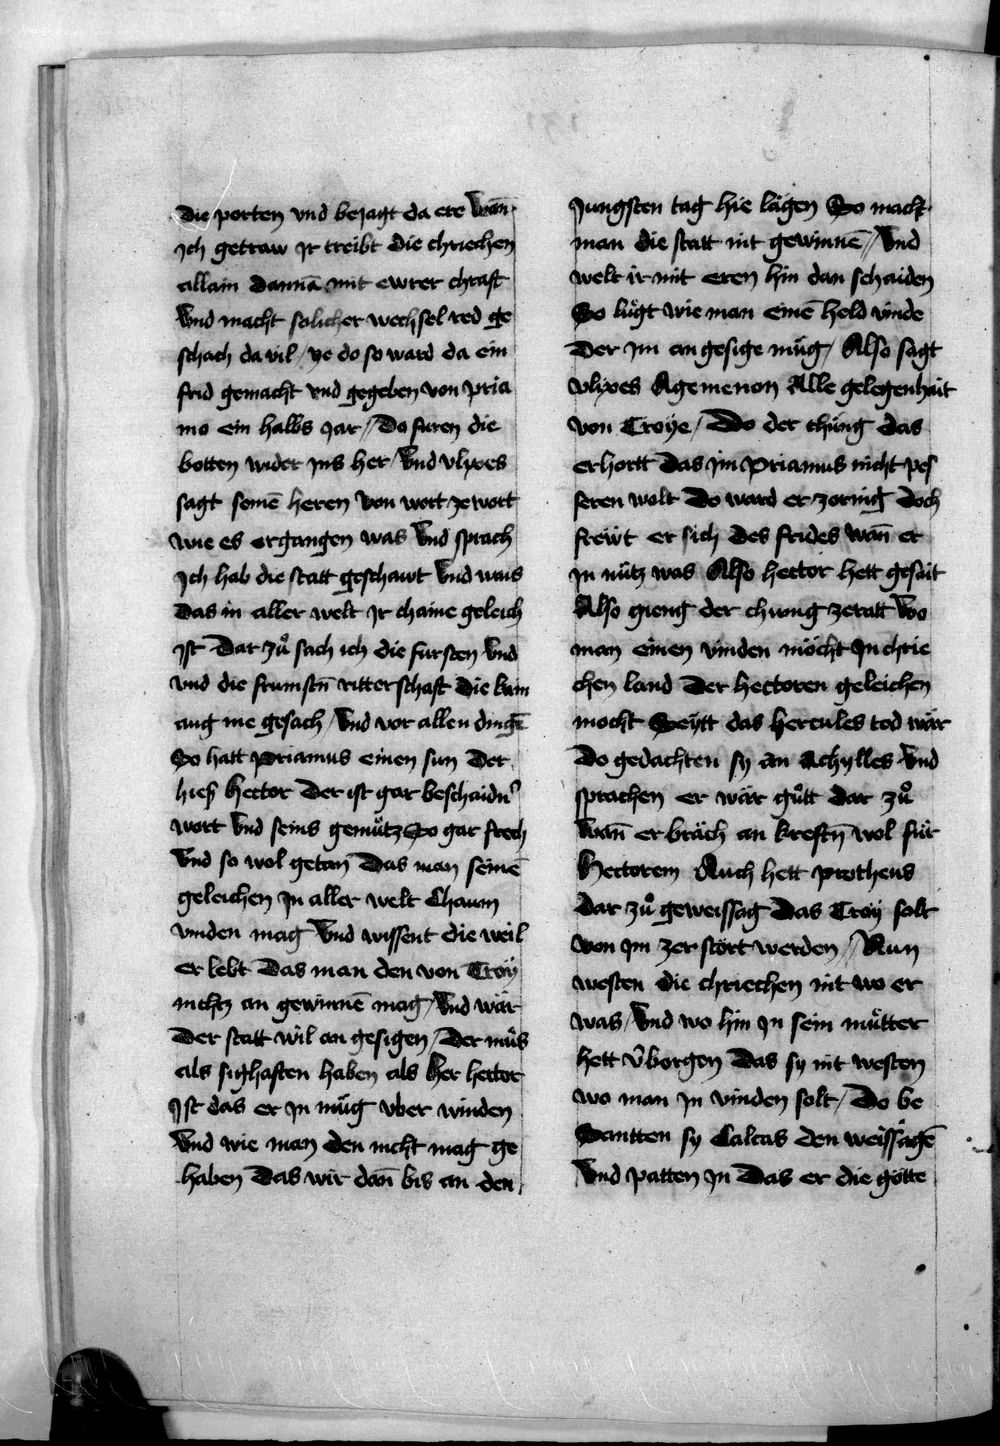 die porten vnd bejagt da ere wan̄
ich getraw jr treibt die chriechen
allain dannā mit ewrer chraft
Vnd macht solicher wechsel red ge
schach da vil / ye do so ward da ein
frid gemacht vnd gegeben von pria
mo ein halbs jar // Do furen die
botten wider jns her / Vnd vlixes
sagt seinē heren von wort ze wort
wie es ergangen was Vnd sprach
Ich hab die statt geschawt Vnd wais
das in aller welt jr chaine geleich
ist Dar zů sach ich die fursten Vnd
vnd die frumstn̄ ritterschaft die kain
aug nie gesach / Vnd vor allen dingē
So hatt priamus einen sun Der
hies Hector Der ist gar beschaidn̄
wort Vnd seins gemůtz So gar frech
Vnd so wol getan Das man seinē
geleichen jn aller welt Chaum
vinden mag Vnd wissent die weil
er lebt Das man den von Troy
nichtz an gewinnē mag / Vnd wär
Der statt wil an gesigen / Der můs
als sighaften haben als her hector
Ist das er jn müg vber winden
Vnd wie man den nicht mag ge
haben Das wir dan̄ bis an den
Jungsten tag hie lägen So mack
man die statt nit gewinnē // Vnd
welt ir mit eren hin dan schaiden
So lůgt wie man einē held vinde
Der im an gesige müg / Also sagt
vlixes Agemenon Alle gelegenhait
von Troye / Do der chüng das
erhortt Das jm Priamus nicht pes
seren wolt Do ward er zornig Doch
frewt er sich des frides wan̄ er
jn nütz was Also hector hett gesait
Also gieng der chung zeratt Wo
man einen vinden möcht Jn chrie
chen land Der hectoren geleichen
mocht Seytt das hercules tod wär
Do gedachten sy an Achylles Vnd
sprachen er wär gůtt dar zů
Wan̄ er bräch an kreftn̄ wol für
Hectorem Auch hett protheus
dar zů geweissag Das Troy solt
von jm zerstört werden // Nun
westen die chriechen nit wo er
was / Vnd wo hin jn sein můtter
hett v̄borgen Das sy nit westen
wo man jn vinden solt / Do be
Santten sy Calcas den weissagē
Vnd patten jn Das er die götte